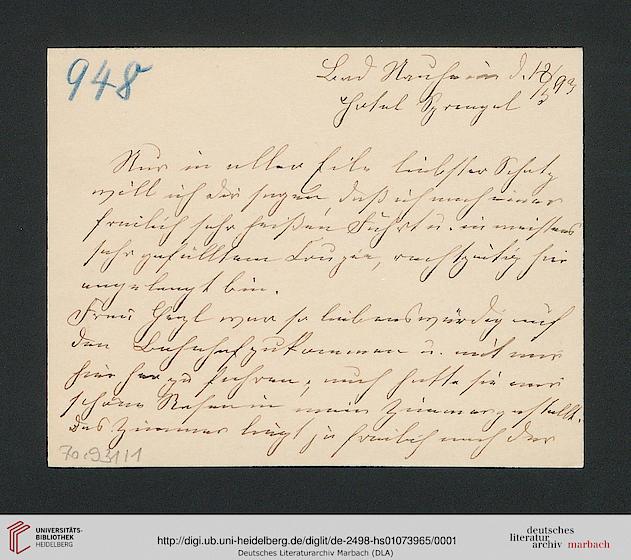 948
Bad Nauheim d. 18/5 93
Hotel Sprengel
Nur in aller Eile liebster Schatz
will ich dir sagen daß ich nach einer
freilich sehr heißen Fahrt u. in meistens
sehr gefülltem Coupée, rechtzeitig hier
angelangt bin.
Frau war so liebenswürdig auf
den Bahnhof zu kommen u. mit mir
hier her zu fahren, auch hatte sie mir
schöne Rosen in mein Zimmer gestellt.
Das Zimmer liegt ja freilich nach der
70.931/1
UNIVERSITÄTS-
BIBLIOTHEK
HEIDELBERG
http://digi.ub.uni-heidelberg.de/diglit/de-2498-hs01073965/0001
Deutsches Literaturarchiv Marbach (DLA)
deutsches
literatur
archiv marbach